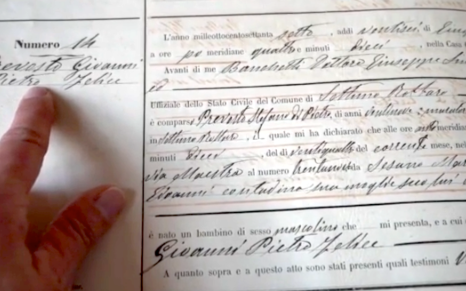 Numero 14
Prevosto Giovanni
Pietro Felice
L'anno milleottocentosettanta sette, addì ventisei di
a ore po meridiane quattro e minuti dieci, nella Casa
Avanti di me Dottore Giuseppe
Uffiziale dello Stato Civile del Comune di Settimo
è comparso Prevosto Stefano di Pietro, di anni
in Settimo il quale mi ha dichiarato che alle ore meridiane
minuti dieci, del dì ventiquattro del corrente mese, nella
via Maestra al numero
Giovanni contadina sua moglie seco lui
è nato un bambino di sesso mascolino che mi presenta, e a cui
Giovanni Pietro Felice
A quanto sopra e a questo atto sono stati presenti quali testimoni